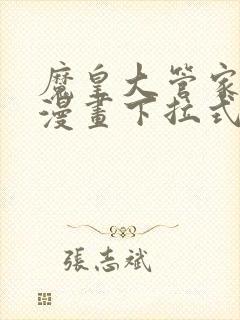 魔皇大管家
漫畫下拉式
張志斌